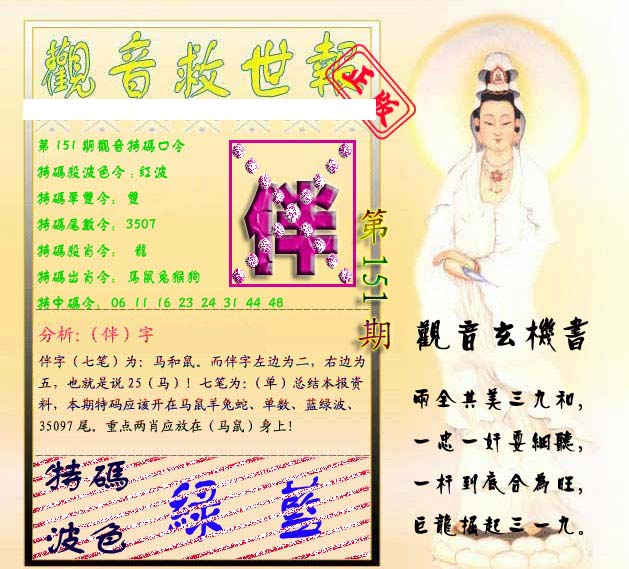 觀音救世報
正字
第151期觀音特碼口令
特碼殺波色令:紅波
特碼單雙令: 雙
特碼尾數令: 3507
特碼殺肖令: 龍
特碼出肖令: 馬鼠兔猴狗
特中碼令: 06 11 16 23 24 31 44 48
伴
第151期
分析:（伴）字
伴字（七笔）为：马和鼠。而伴字左边为二，右边为
五，也就是说25（马）！七笔为：（单）总结本报资
料，本期特码应该开在马鼠羊兔蛇、单数、蓝绿波、
35097尾。重点两肖应放在（马鼠）身上！
特碼
波色
綠 藍
觀音玄機書
兩全其美三九和，
一忠一奸要細聽，
一杆到底合為旺，
巨龍掘起三一九。